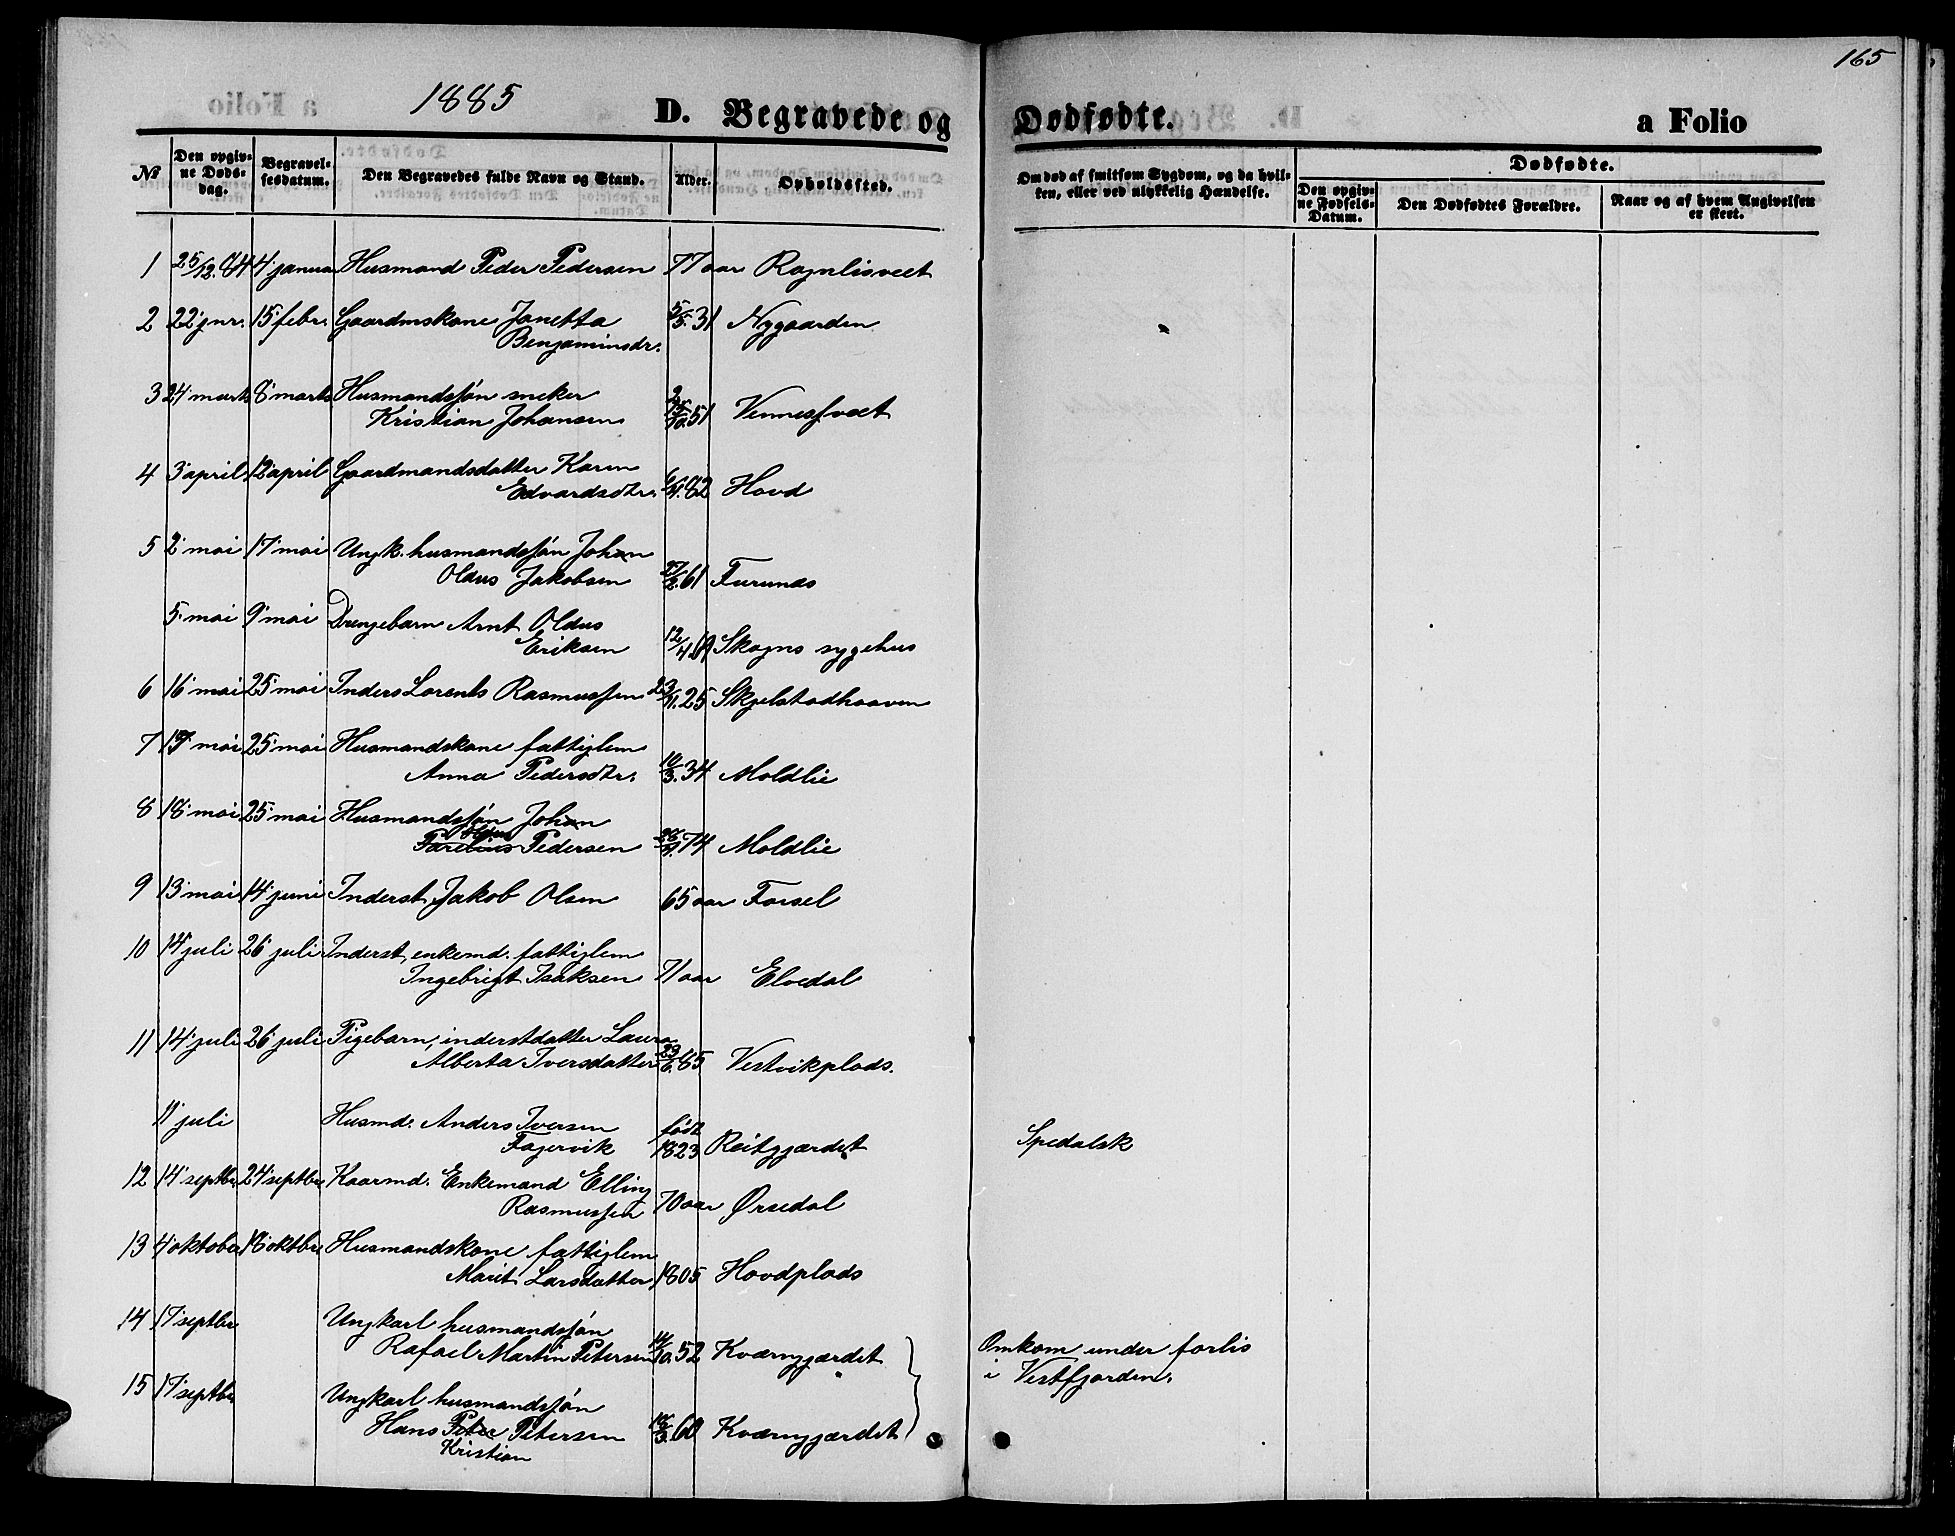 165
1885 D. Begravede og Dødfødte. a Folio
№
Den opgiv-
ne Døds-
dag.
Begravel-
sesdatum.
Den Begravedes fulde Navn og Stand.
Alder.
Opholdssted.
Om død af smitsom Sygdom, og da hvil-
ken, eller ved ulykkelig Hændelse.
Dødfødte.
Den opgiv-
ne Fødsels-
Datum.
Den Dødfødtes Forældre.
Naar og af hvem Angivelsen
er skeet.
1 25/12.84 4 januar Husmand Peder Pedersen 77 aar Rognlisveet
2 22 jnr. 15 febr. Gaardmskone Janetta
Benjaminsdr. 5/5.31 Nygaarden
3 24 marts 8 marts Husmandssøn sneker
Kristian Johansen 51 Vennessveet
4 3 april 12 april Gaardmandsdatter Karen
Edvardsdtr. 82 Hovd
5 2 mai 17 mai Ungk. husmandssøn Johan
Oldus Jakobsen 27/2.61 Furunes
5 mai 9 mai Drengebarn Arnt Oldus
Eriksen 12/4 Skogns sygehus
6 16 mai 25 mai Inders Lorents Rasmussen 23/11.25 Skjelstadhaaven
7 19 mai 25 mai Husmandskone fattiglem
Anna Pedersdtr. 10/3.34 Moldlie
8 18 mai 25 mai Husmandssøn Johan
Parelius Pedersen 74 Moldlie
9 13 mai 14 juni Inderst Jakob Olsen 65 aar Forsel
10 14 juli 26 juli Inderst, enkemd. fattiglem
Ingebrigt Isaksen 71 aar Elvedal
11 14 juli 26 juli Pigebarn, inderstdatter Laura
Alberta Iversdatter 23/6.85 Vestvikplads.
11 juli Husmd. Anders Iversen
Fagervik født
1823 Reitgjærdet Spedalsk
12 14 septbr 24 septbr Kaarmd. Enkemand Elling
Rasmussen 70 aar Ørsedal
13 4 oktober 18 oktbr Husmandskone fattiglem
Marit Larsdatter 1805 Hovdplads
14 17 septbr Ungkarl husmandssøn
Rafael Martin Petersen 14/10.52 Kværngjærdet
Omkom under forlis
i Vestfjorden.
15 17 septbr Ungkarl husmandssøn
Hans Peter Petersen 60 Kværngjærdet
Kristian